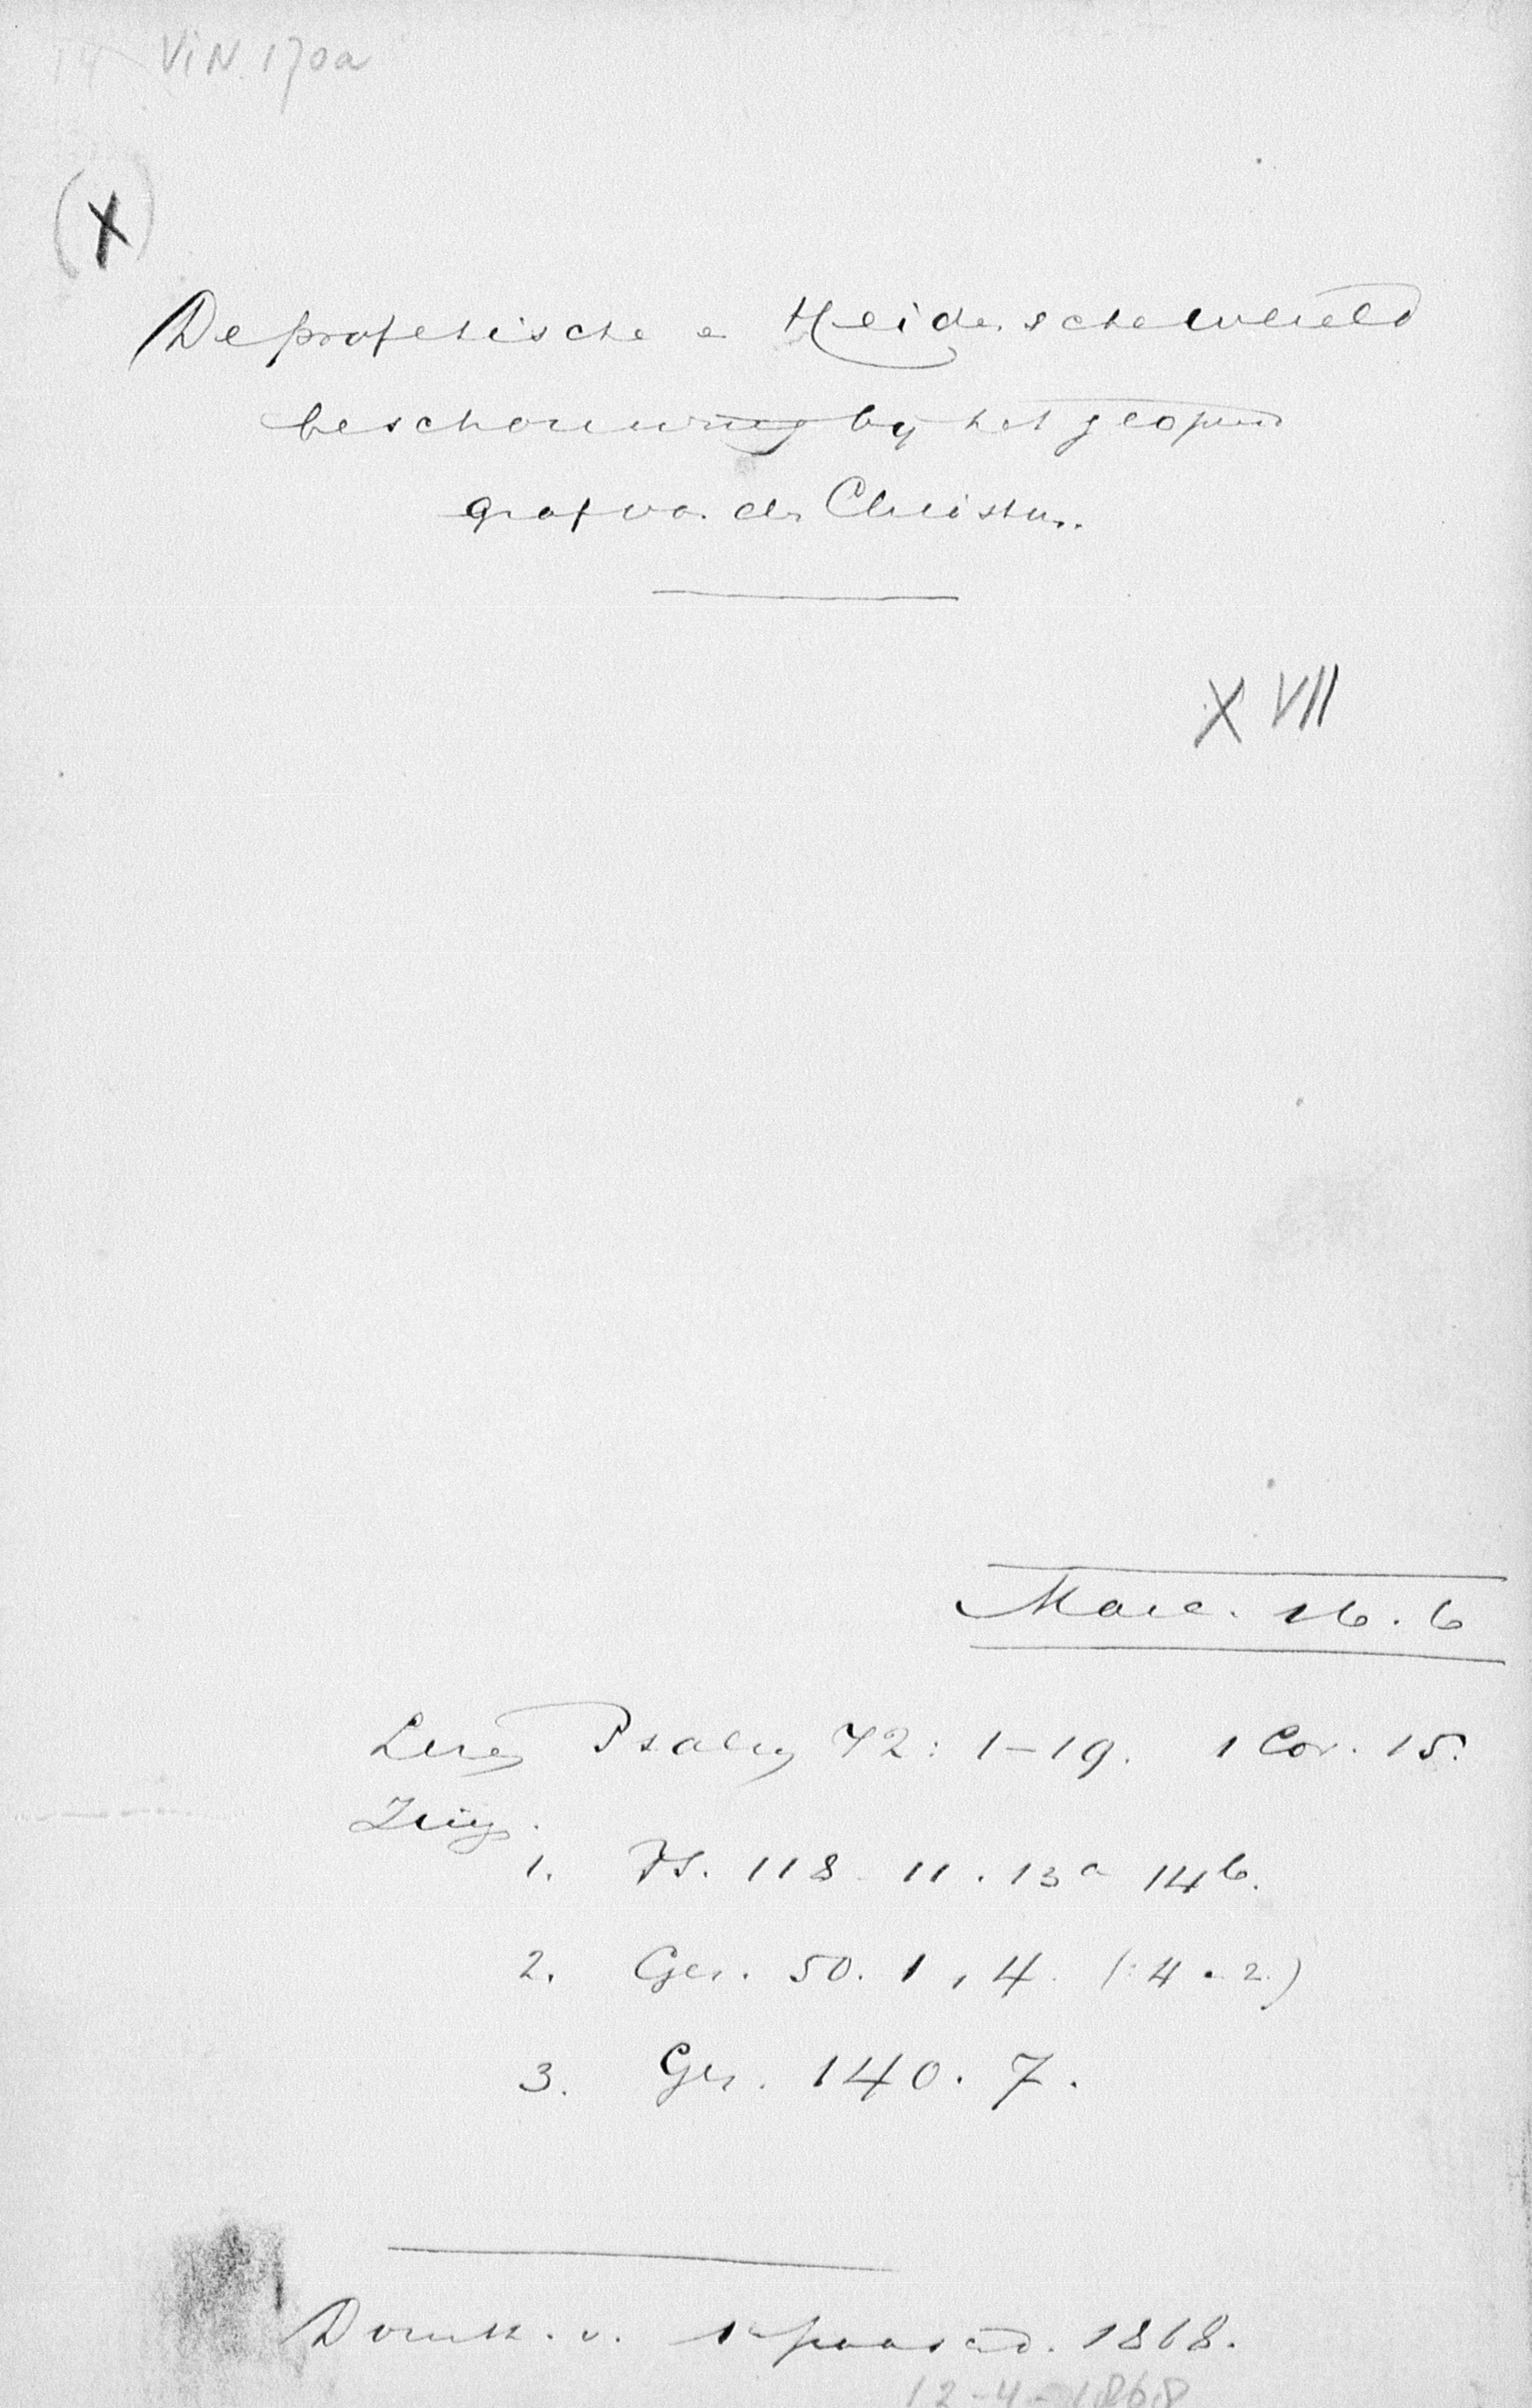 14 ViN. 170a
(X)
De profetische e Heidensche wereld
beschouwing by het geopend
graf van den Christus.
XVII
Marc. 16. 6
Lezen Psalm 72: 1-19. 1 Cor. 15.
Zing.
1. Ps. 118. 11. 13a 14b.
2. Gez. 50. 1, 4. (: 4 . 2.)
3. Gez. 140. 7.
Domk. v. 1e paasd. 1868.
12-4-1868